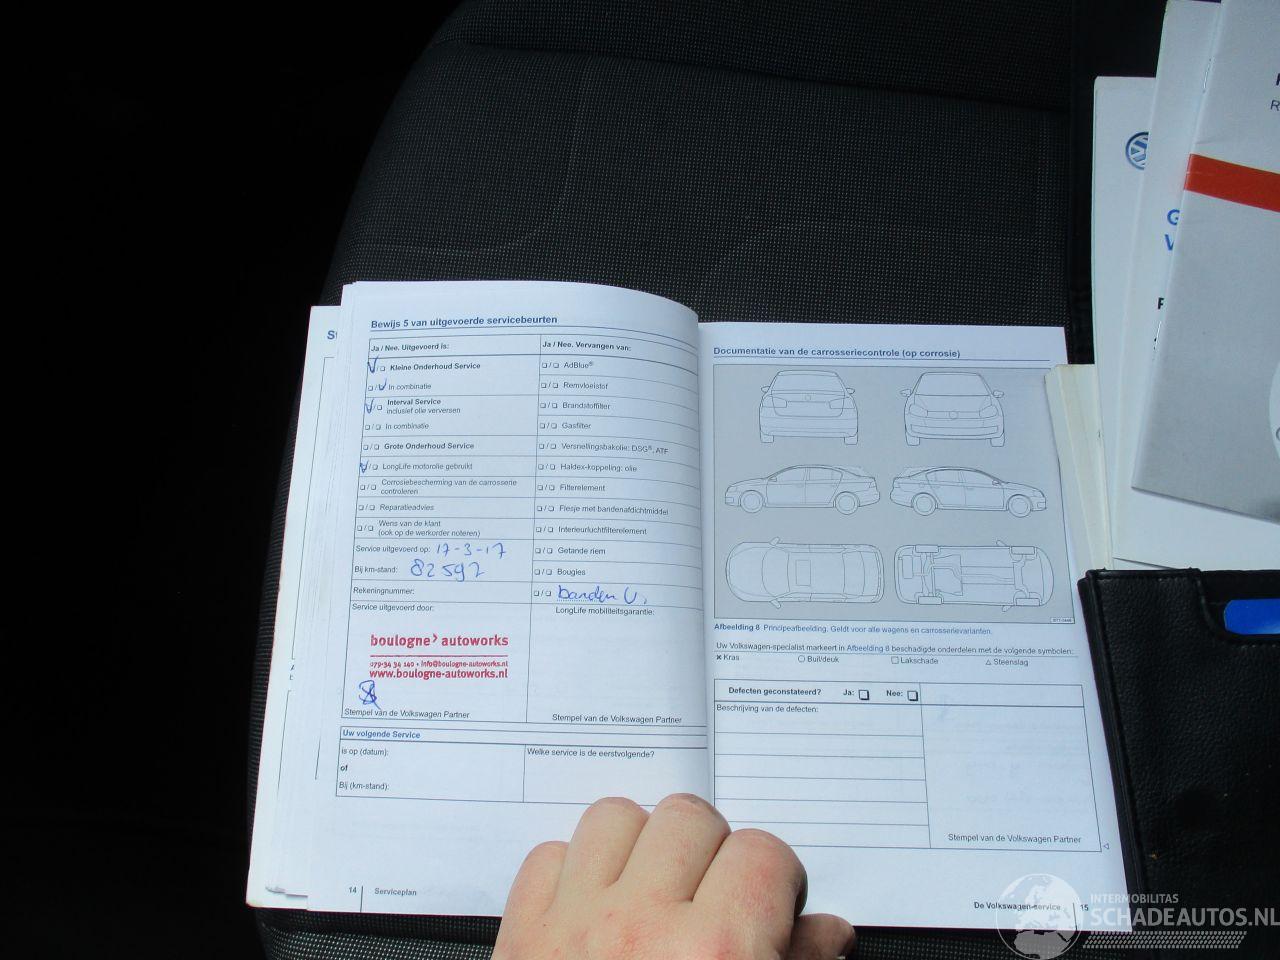 Bewijs 5 van uitgevoerde servicebeurten
Ja / Nee. Uitgevoerd is:
Kleine Onderhoud Service
In combinatie
Interval Service
inclusief olie verversen
In combinatie
Grote Onderhoud Service
LongLife motorolie gebruikt
Corrosiebescherming van de carrosserie
controleren
Reparatieadvies
Wens van de klant
(ook op de werkorder noteren)
Service uitgevoerd op: 17-3-17
Bij km-stand: 82597
Rekeningnummer:
Service uitgevoerd door:
boulogne> autoworks
079-34 34 140 • info@boulogne-autoworks.nl
www.boulogne-autoworks.nl
Stempel van de Volkswagen Partner
Ja / Nee. Vervangen van:
AdBlue®
Remvloeistof
Brandstoffilter
Gasfilter
Versnellingsbakolie: DSG®, ATF
Haldex-koppeling: olie
Filterelement
Flesje met bandenafdichtmiddel
Interieurluchtfilterelement
Getande riem
Bougies
banden V.
LongLife mobiliteitsgarantie:
Stempel van de Volkswagen Partner
Uw volgende Service
is op (datum):
of
Bij (km-stand):
Welke service is de eerstvolgende?
14 Serviceplan
Documentatie van de carrosseriecontrole (op corrosie)
Afbeelding 8 Principeafbeelding. Geldt voor alle wagens en carrosserievarianten.
Uw Volkswagen-specialist markeert in Afbeelding 8 beschadigde onderdelen met de volgende symbolen:
Kras
Buil/deuk
Lakschade
Steenslag
Defecten geconstateerd? Ja: Nee:
Beschrijving van de defecten:
Stempel van de Volkswagen Partner
De Volkswagen-service 15
INTERMOBILITAS
SCHADEAUTOS.NL